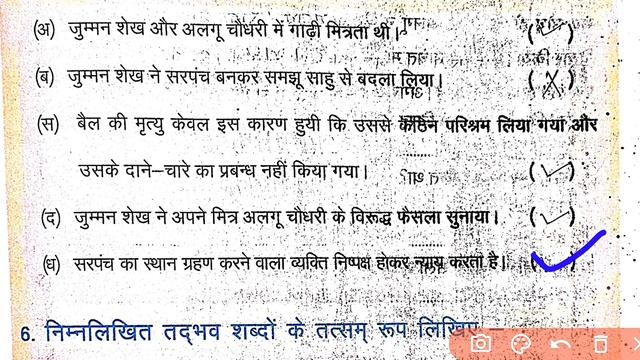 (अ) जुम्मन शेख और अलगू चौधरी में गाढ़ी मित्रता थी। (✓)
(ब) जुम्मन शेख ने सरपंच बनकर समझू साहु से बदला लिया। (X)
(स) बैल की मृत्यु केवल इस कारण हुयी कि उससे कठिन परिश्रम लिया गया और
उसके दाने–चारे का प्रबन्ध नहीं किया गया। (✓)
(द) जुम्मन शेख ने अपने मित्र अलगू चौधरी के विरूद्ध फैसला सुनाया। (✓)
(ध) सरपंच का स्थान ग्रहण करने वाला व्यक्ति निष्पक्ष होकर न्याय करता है। (✓)
6. निम्नलिखित तद्भव शब्दों के तत्सम् रूप